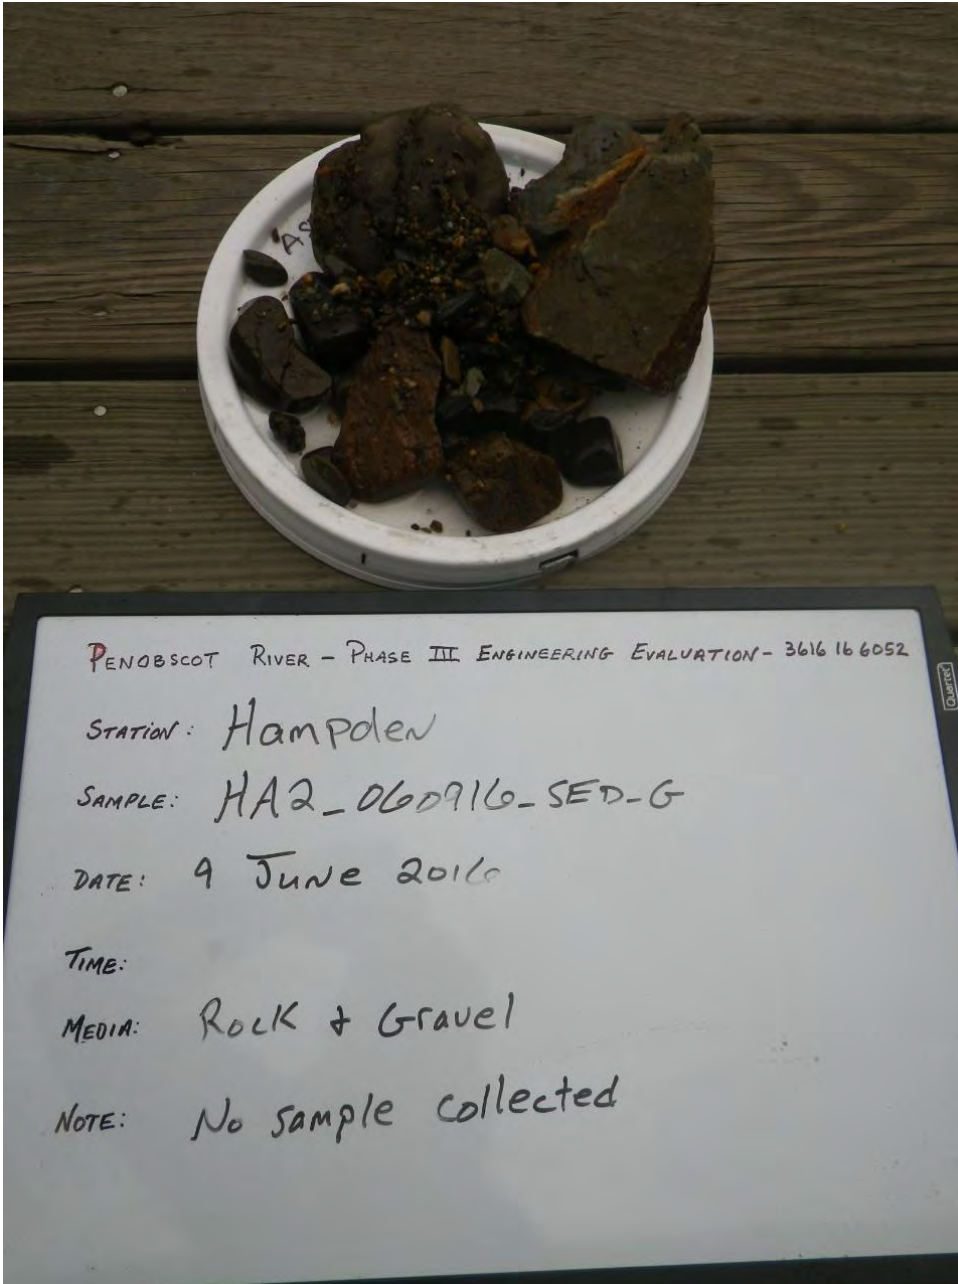 AS
PENOBSCOT RIVER - PHASE III ENGINEERING EVALUATION - 3616 16 6052
Quartet
STATION: Hampden
SAMPLE: HA2_060916_SED_G
DATE: 9 June 2016
TIME:
MEDIA: Rock & Gravel
NOTE: No sample collected